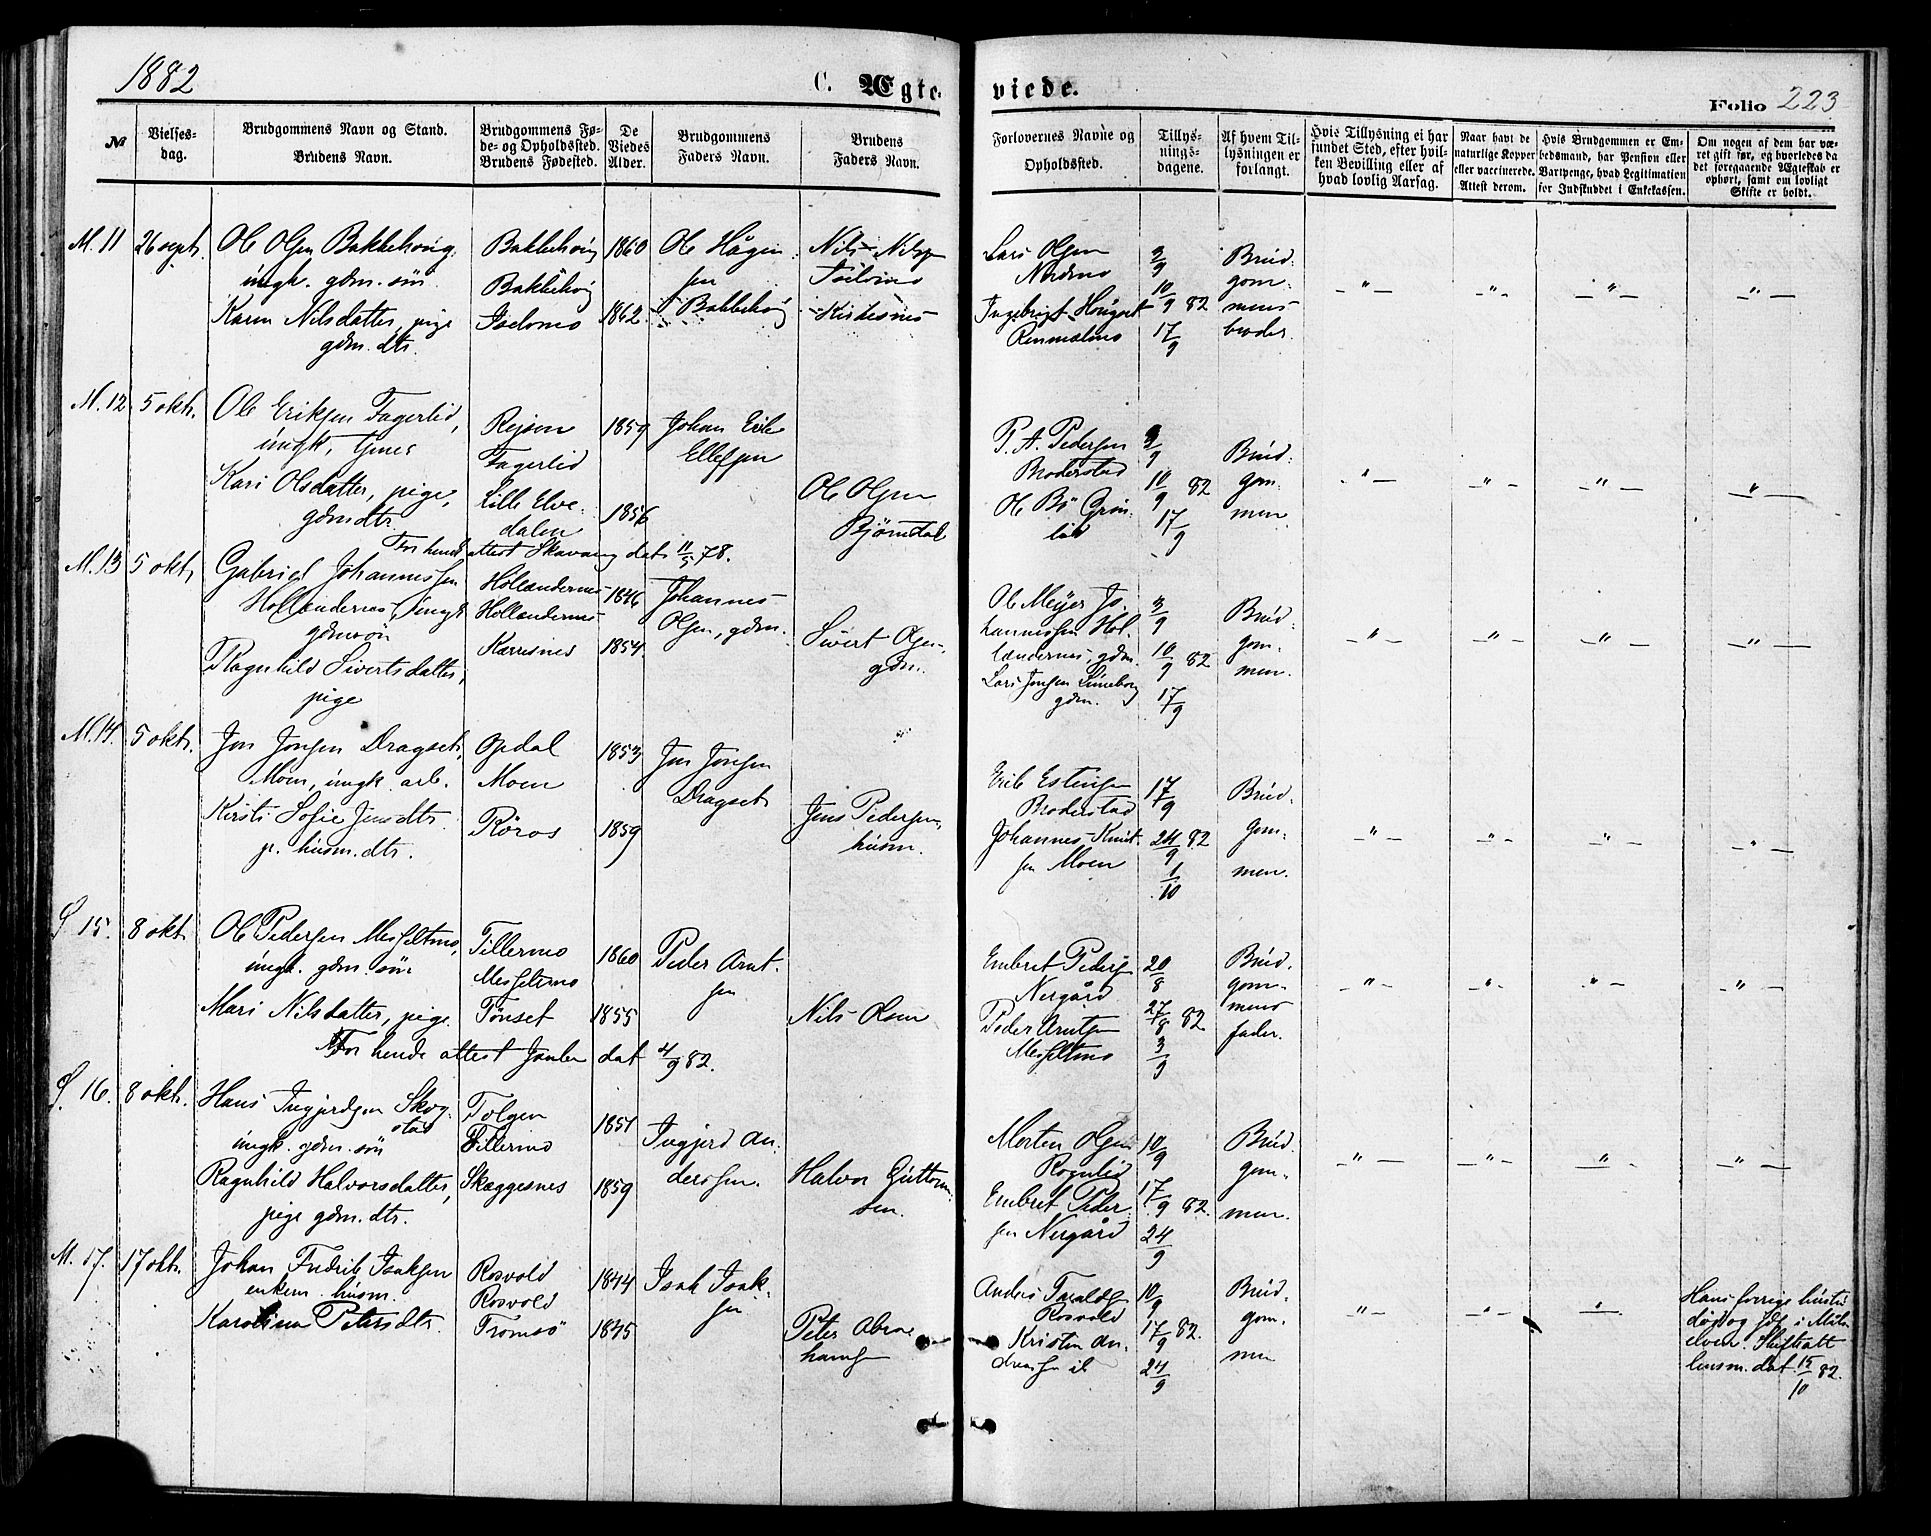 1882
C. Ægteviede.
Folio 223
№
Vielsesdag.
Brudgommens Navn og Stand.
Brudens Navn.
Brudgommens Føde- og Opholdssted.
Brudens Fødested.
De Viedes Alder.
Brudgommens Faders Navn.
Brudens Faders Navn.
Forlovernes Navne og Opholdssted.
Tillysningsdagene.
Af hvem Tillysningen er forlangt.
Hvis Tillysning ei har fundet Sted, efter hvilken Bevilling eller af hvad lovlig Aarsag.
Naar havt de naturlige Kopper eller vaccinerede. Attest derom.
Hvis Brudgommen er Embedsmand, har Pension eller Vartpenge, hvad Legitimation for Indskuddet i Enkekassen.
Om nogen af dem har været gift før, og hvorledes da det foregaaende Ægteskab er ophørt, samt om lovligt Skifte er holdt.
M. 11
26 sept.
Ole Olsen Bakkehaug,
ungk. gdm. søn
Karen Nilsdatter, pige
gdm. dtr.
Bakkehaug
Bakkehaug
1860
1862
Ole
sen
Bakkehaug
Nils Nilsen
Kirkesnes
Lars Olsen
Nordmo
Ingebrigt
3/9
10/9 82
17/9
Brud-
gom-
mens
broder.
M. 12
5 okt.
Ole Eriksen Fagerlid,
ungk, tjener
Kari Olsdatter, pige,
gdm dtr.
Fagerlid
Lille Elve-
dalen
1859
1856
Johan Erik
Ellefsen
Ole Olsen
Bjørndal
P. A. Pedersen
Broderstad
Ole Bø Grøn-
lid
3/9
10/9 82
17/9
Brud-
gom-
men
For hende attest Stavang dat. 11/5 78.
M. 13
5 okt,
Gabriel Johannessen
Hollendernes, ungk
gdm søn
Ragnhild Sivertsdatter,
pige
Hollendernes
Hollendernes
Karrisnes
1846
1854
Johannes
Olsen, gdm.
Sivert Olsen,
gdm.
Ole Meyer Jo-
hannessen Hol-
lændernes, gdm.
Lars Jonsen
gdm.
3/9
10/9 82
17/9
Brud-
gom-
men.
M. 14.
5 okt.
Jon Jonsen Dragset,
Moen, ungk. arb.
Kirsti Sofie Jensdtr.
p. husm. dtr.
Opdal
Moen
Røros
1853
1859
Jon Jonsen
Dragset
Jens Pedersen,
husm.
Erik Estensen
Broderstad
Johannes Knut-
sen Moen
17/9
24/9 82
1/10
Brud-
gom-
men.
S. 15.
8 okt.
Ole Pedersen Messeltmo,
ungk. gdm. søn
Mari Nilsdatter, pige
Tillermo
Messeltmo
Tønset
1860
1855
Peder Arnt-
sen
Nils Olsen
Embret Peders
Nergård
Peder Arntsen
Messeltmo
20/8
27/8 82
3/9
Brud-
gom-
mens
fader.
For hende attest dat 4/9 82.
S. 16.
8 okt.
Hans Ingjerdsen Skog-
stad
ungk. gdm. søn
Ragnhild Halvorsdatter,
pige gdm. dtr.
Tolgen
Tillermo
Skæggesnes
1851
1859
Ingjerd An-
dersen.
Halvor Guttorm-
sen.
Morten Olsen
Rognlid
Embret Peder-
sen Nergård
10/9
17/9 82.
24/9
Brud-
gom-
men.
M. 17.
17 okt.
Johan Fredrik Isaksen
enkem. husm.
Karolina Petersdtr.
Rosvold
Rosvold
Tromsø
1844
1845
Isak Isak-
sen
Peter Abra-
hamsen
Anders Taraldsen
Rosvold
Kristen An-
dreassen
10/9
17/9 82.
24/9
Brud-
gom-
men
Hans forrige hustru
død og i
elven. Skifteatt
lensm. dat. 15/10 82.